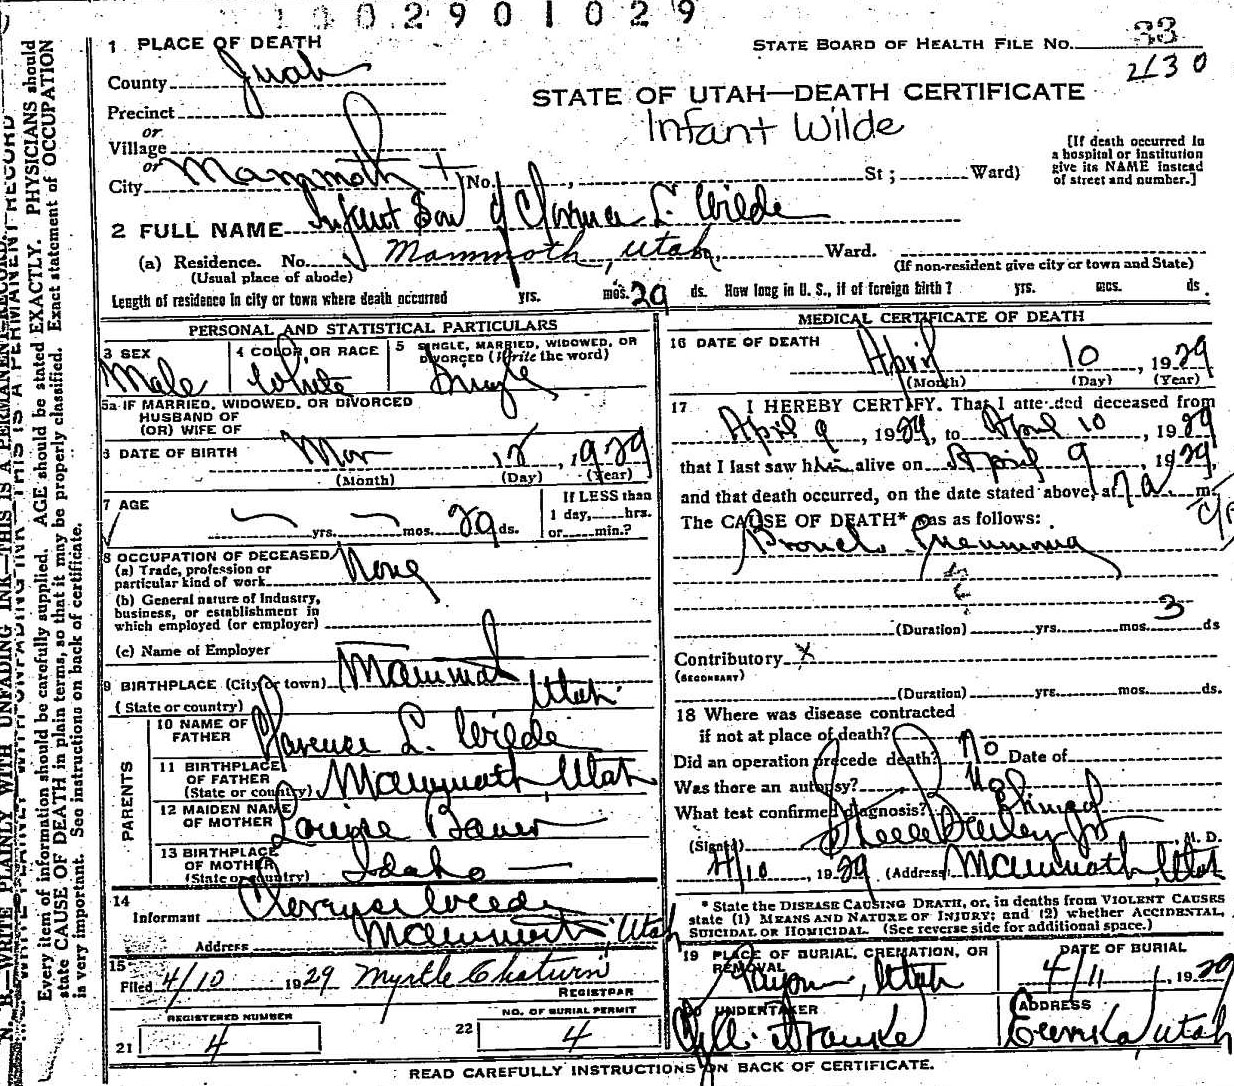 1002901029
1 PLACE OF DEATH
STATE BOARD OF HEALTH FILE NO. 33
County Juab
2130
Precinct
STATE OF UTAH—DEATH CERTIFICATE
or
Infant Wilde
Village
or
City Mammoth No. St; Ward)
[If death occurred in
a hospital or institution
give its NAME instead
of street and number.]
2 FULL NAME Infant Son of Clarence L. Wilde
(a) Residence. No. Mammoth, Utah, Ward.
(Usual place of abode)
(If non-resident give city or town and State)
Length of residence in city or town where death occurred yrs. mos. 29 ds. How long in U. S., if of foreign birth? yrs. mos. ds.
PERSONAL AND STATISTICAL PARTICULARS
3 SEX
Male
4 COLOR OR RACE
White
5 SINGLE, MARRIED, WIDOWED, OR
DIVORCED (Write the word)
Single
5a IF MARRIED, WIDOWED, OR DIVORCED
HUSBAND OF
(OR) WIFE OF
6 DATE OF BIRTH Mar 12, 1929
(Month) (Day) (Year)
7 AGE
yrs. mos. 29 ds.
If LESS than
1 day, hrs.
or min.?
8 OCCUPATION OF DECEASED
(a) Trade, profession or
particular kind of work None
(b) General nature of Industry,
business, or establishment in
which employed (or employer)
(c) Name of Employer
9 BIRTHPLACE (City or town) Mammoth
(State or country) Utah
PARENTS
10 NAME OF
FATHER Clarence L. Wilde
11 BIRTHPLACE
OF FATHER
(State or country) Mammoth, Utah
12 MAIDEN NAME
OF MOTHER Louise Bauer
13 BIRTHPLACE
OF MOTHER
(State or country) Idaho
14
Informant Clarence Wilde
Address Mammoth, Utah
15
Filed 4/10 1929 Myrtle
REGISTRAR
REGISTERED NUMBER
21 4
NO. OF BURIAL PERMIT
22 4
MEDICAL CERTIFICATE OF DEATH
16 DATE OF DEATH
April 10, 1929
(Month) (Day) (Year)
17 I HEREBY CERTIFY, That I attended deceased from
April 9, 1929, to April 10, 1929
that I last saw him alive on April 9, 1929,
and that death occurred, on the date stated above, at 7 a. m.
The CAUSE OF DEATH* was as follows:
Bronch Pneumonia
(Duration) yrs. mos. 3 ds
Contributory X
(SECONDARY)
(Duration) yrs. mos. ds.
18 Where was disease contracted
if not at place of death?
Did an operation precede death? No Date of
Was there an autopsy? No
What test confirmed diagnosis? Clinical
(Signed) Steele Bailey Jr M. D.
4/10, 1929 (Address) Mammoth, Utah
* State the DISEASE CAUSING DEATH, or, in deaths from VIOLENT CAUSES
state (1) MEANS AND NATURE OF INJURY; and (2) whether ACCIDENTAL,
SUICIDAL OR HOMICIDAL. (See reverse side for additional space.)
19 PLACE OF BURIAL, CREMATION, OR
REMOVAL
Payson, Utah
DATE OF BURIAL
4/11, 1929
UNDERTAKER
ADDRESS
Eureka, Utah
READ CAREFULLY INSTRUCTIONS ON BACK OF CERTIFICATE.
N. B.—WRITE PLAINLY WITH UNFADING INK—THIS IS A PERMANENT RECORD.
Every item of information should be carefully supplied. AGE should be stated EXACTLY. PHYSICIANS should
state CAUSE OF DEATH in plain terms, so that it may be properly classified. Exact statement of OCCUPATION
is very important. See instructions on back of certificate.